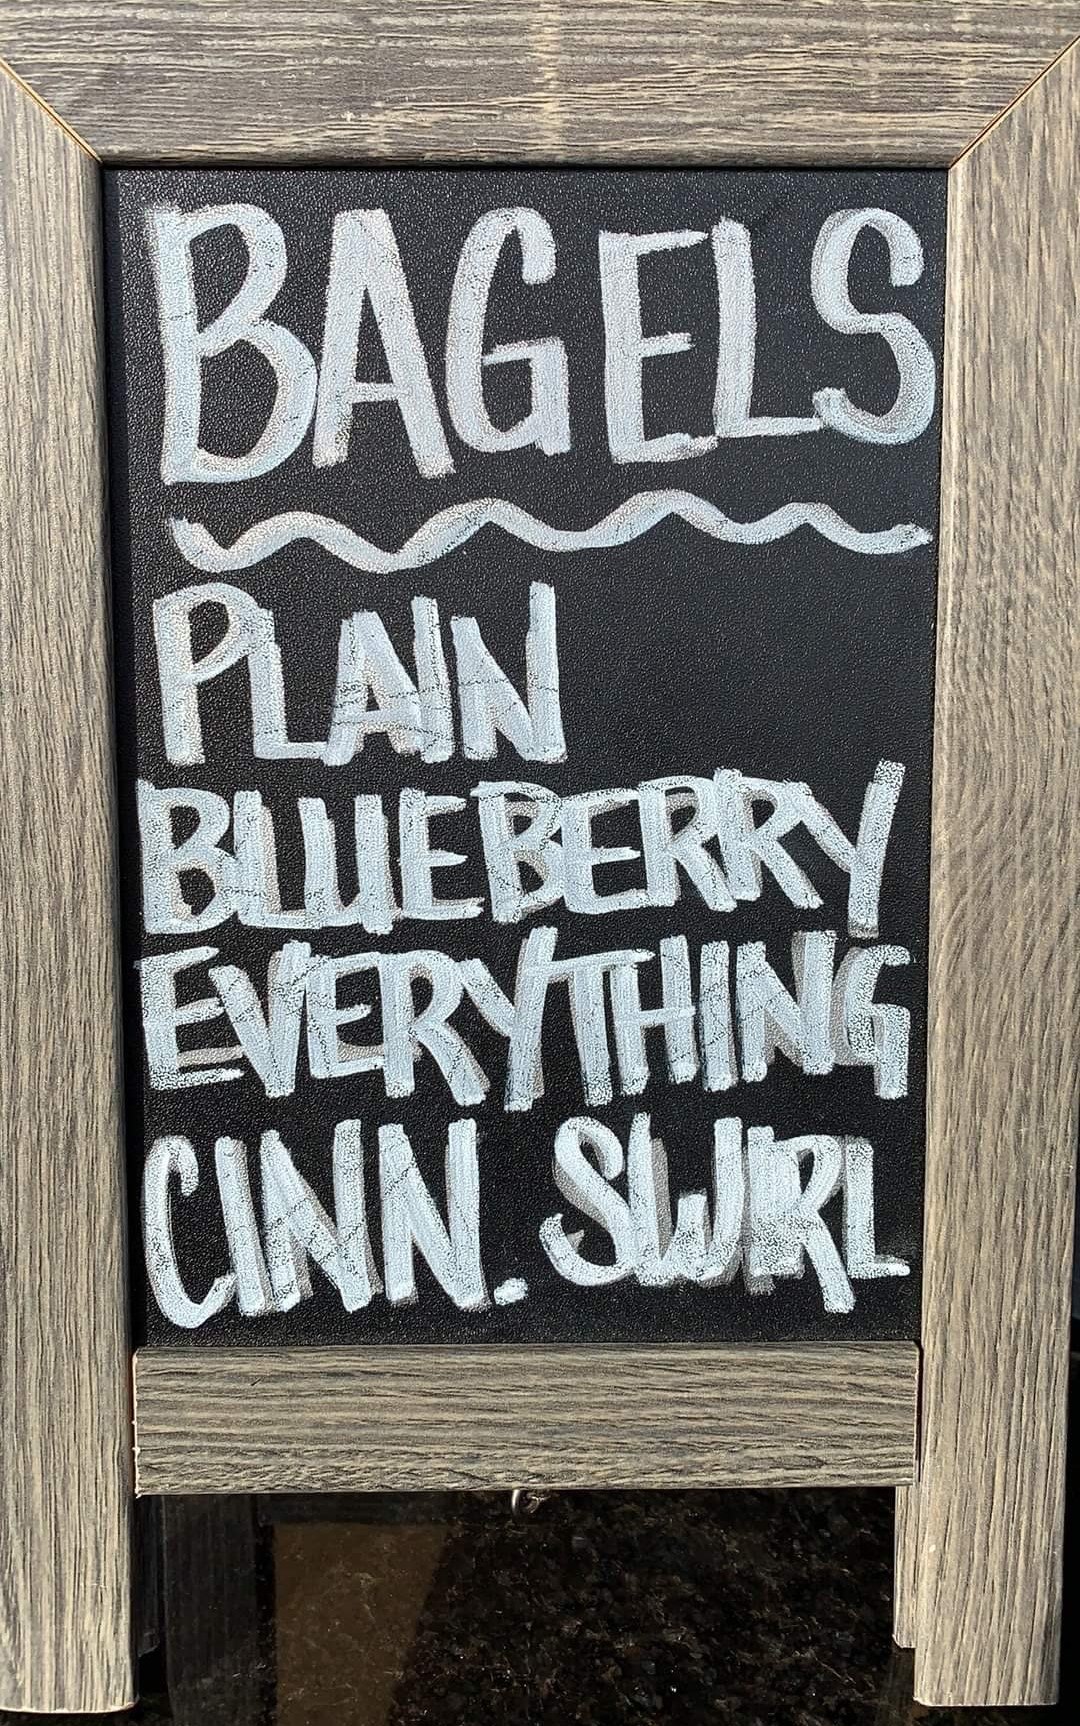 BAGELS
PLAIN
BLUEBERRY
EVERYTHING
CINN. SWIRL